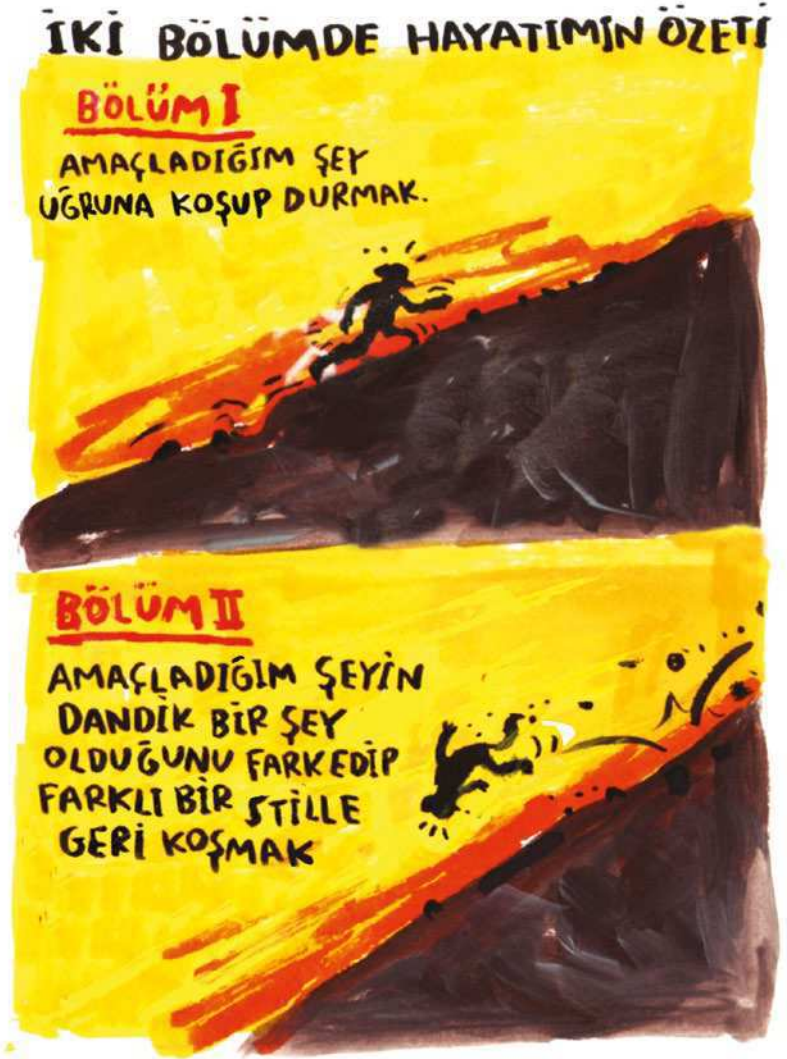 İKİ BÖLÜMDE HAYATIMIN ÖZETİ
BÖLÜM I
AMAÇLADIĞIM ŞEY
UĞRUNA KOŞUP DURMAK.
BÖLÜM II
AMAÇLADIĞIM ŞEYİN
DANDİK BİR ŞEY
OLDUĞUNU FARKEDİP
FARKLI BİR STİLLE
GERİ KOŞMAK